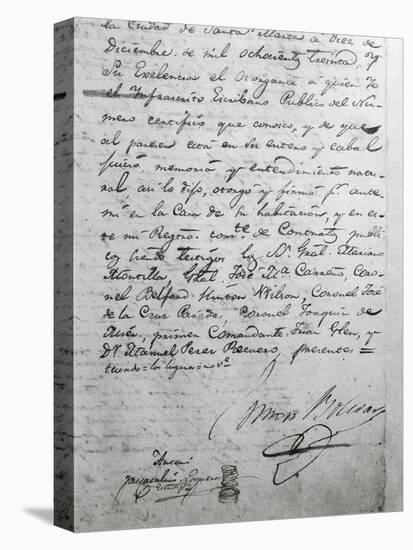 la Ciudad de Santa Marta a diez de
Diciembre de mil ochocientos treinta, y
Su Exelencia el otorgante a quien Yo
el Infraescrito Escribano Publico del Nu-
mero certifico que conosco, y de que
al parecer está en su entero y cabal
juicio, memoria y entendimiento natu-
ral asi lo dijo, otorgo y firmó pr. ante
mi en la Casa de su habitacion, y en es-
te mi Registro corrte. de Contratos publi-
cos siendo testigos los Sr. Gral. Mariano
Montilla Gral. José Ma. Carreño, Coro-
nel Belford Hinton Wilson, Coronel José
de la Cruz Paredes, Coronel Joaquin de
Mier, primer Comandante Juan Glen, y
Dr. Manuel Perez Recuero, presentes =
Simon Bolivar
Ante mi
Noguera